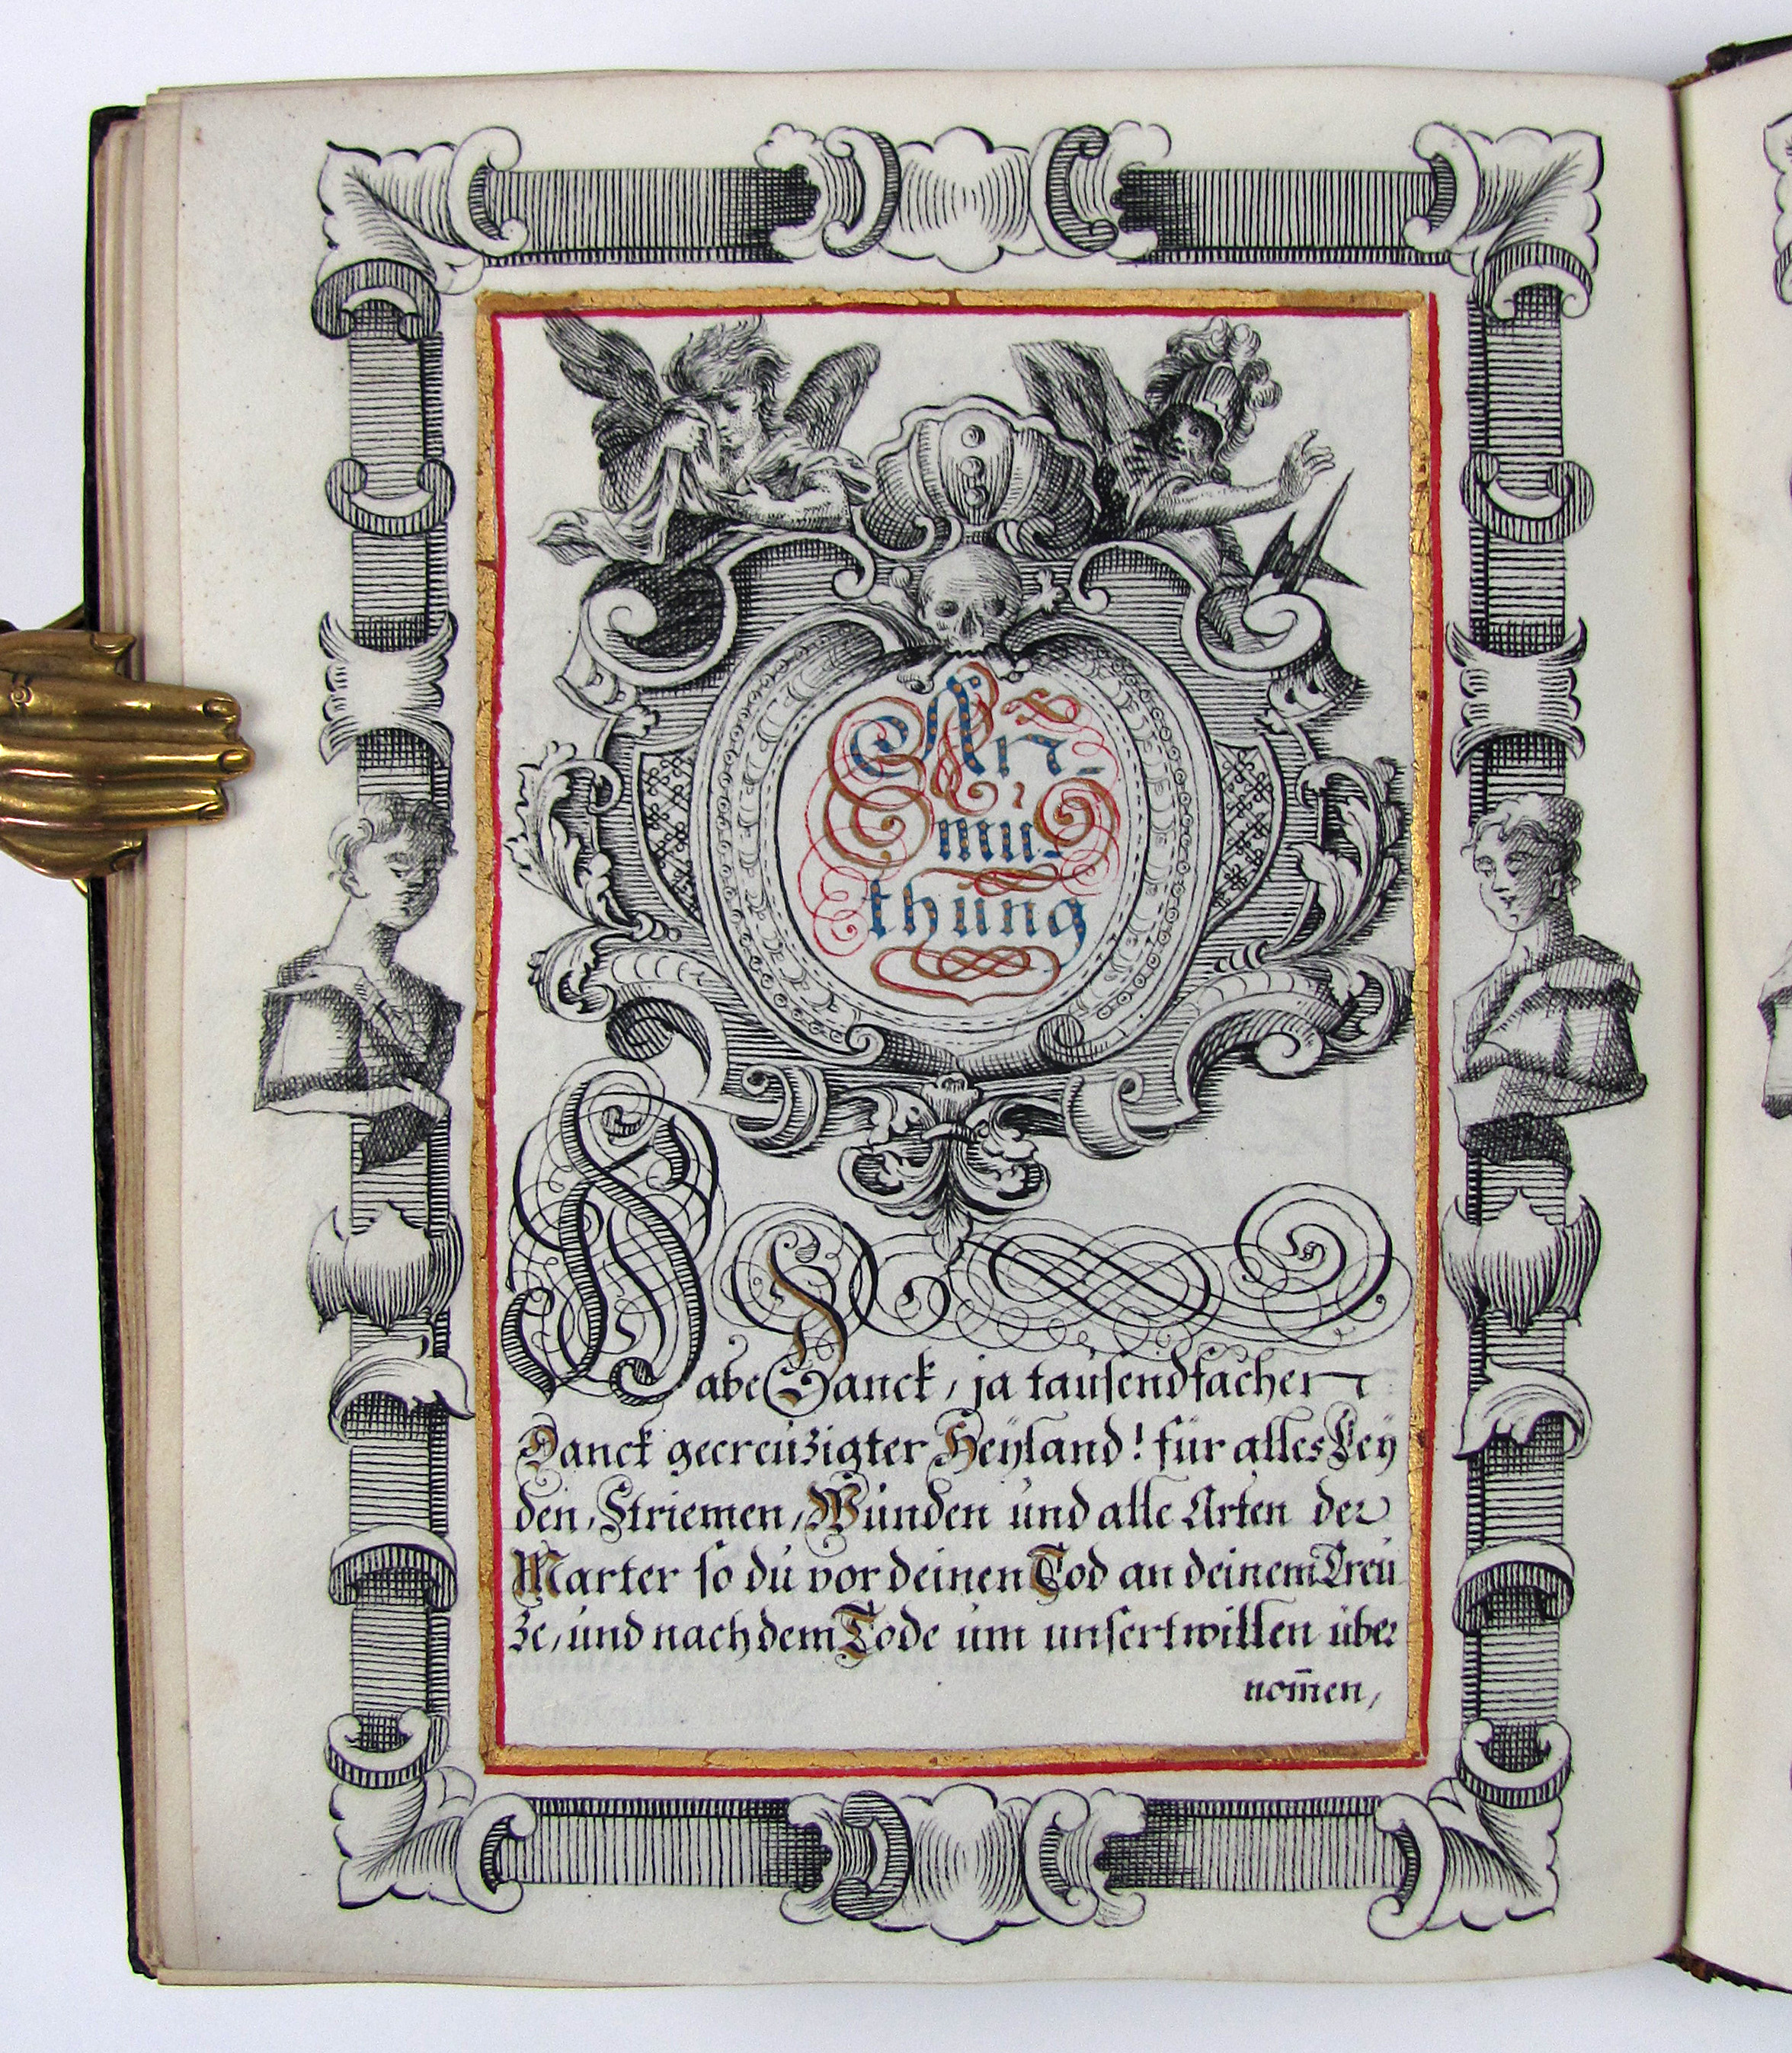 An-
mu-
thung
Habe Danck, ja tausendfacher
Danck gecreuzigter Heÿland! für alles Leÿ
den, Striemen, Wunden und alle Arten der
Marter so du vor deinen Tod an deinem Creu
ze, und nach dem Tode um unsertwillen über
nom̄en,